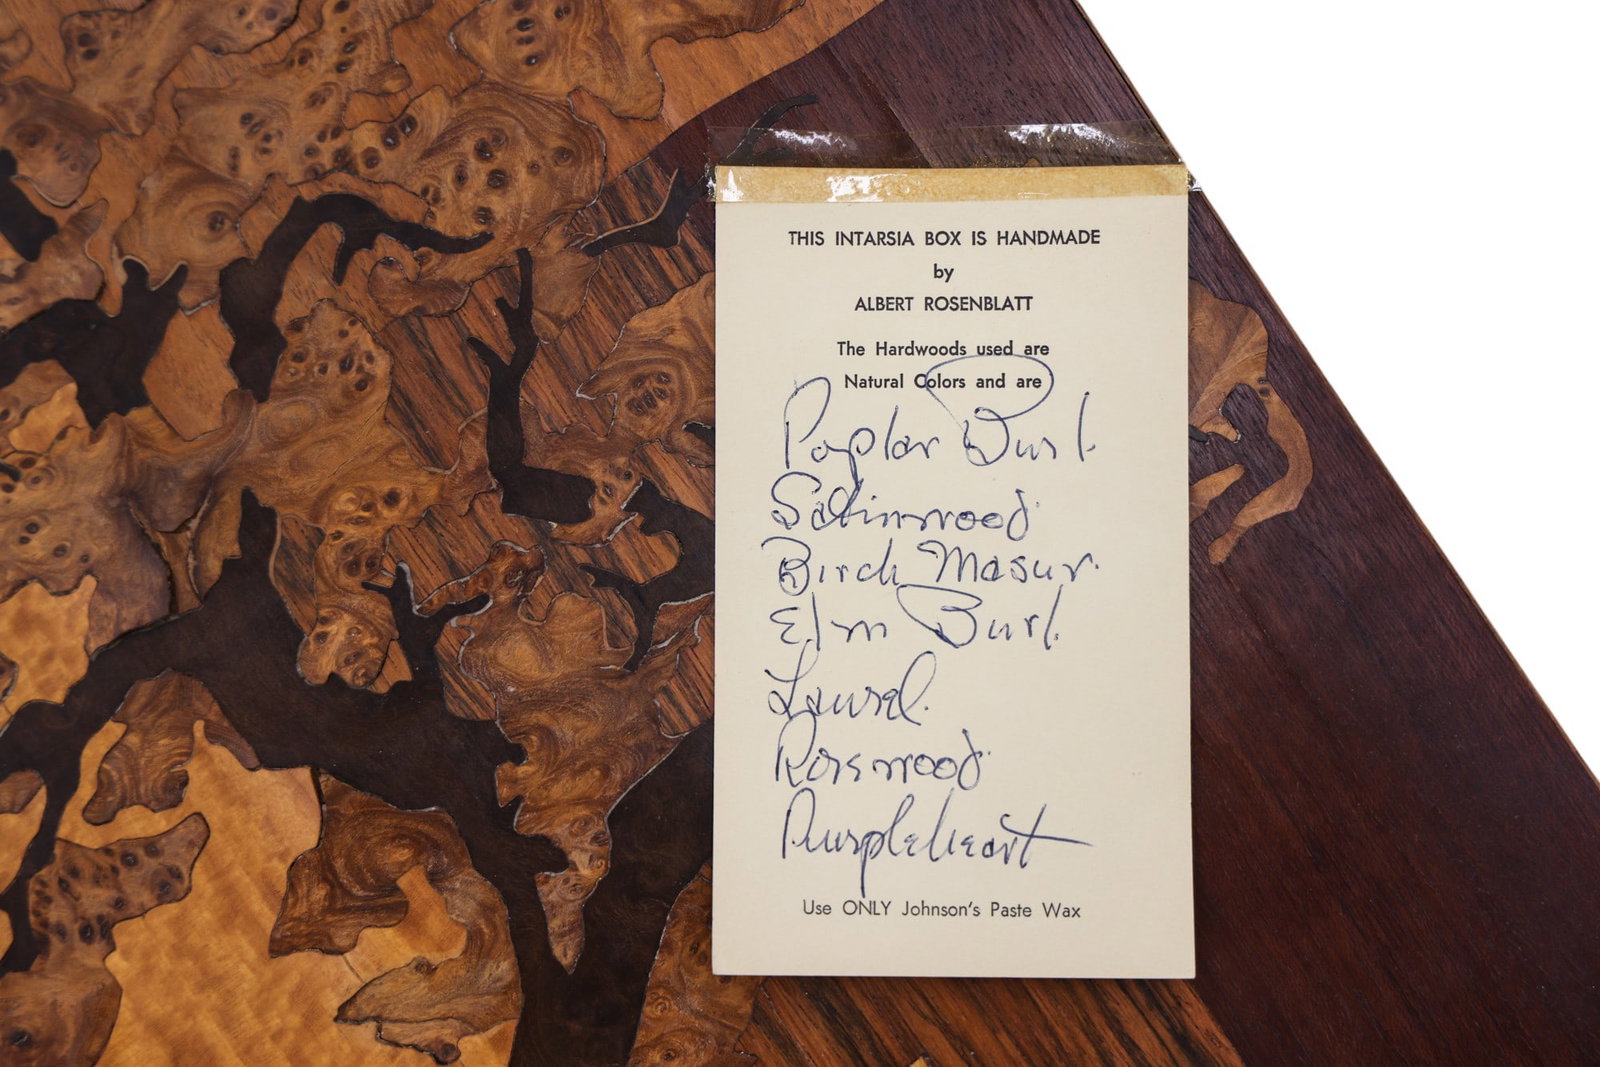 THIS INTARSIA BOX IS HANDMADE
by
ALBERT ROSENBLATT
The Hardwoods used are
Natural Colors and are
Poplar Burl.
Satinwood.
Birch Masur.
Elm Burl.
Laurel.
Rosewood.
Purpleheart
Use ONLY Johnson's Paste Wax